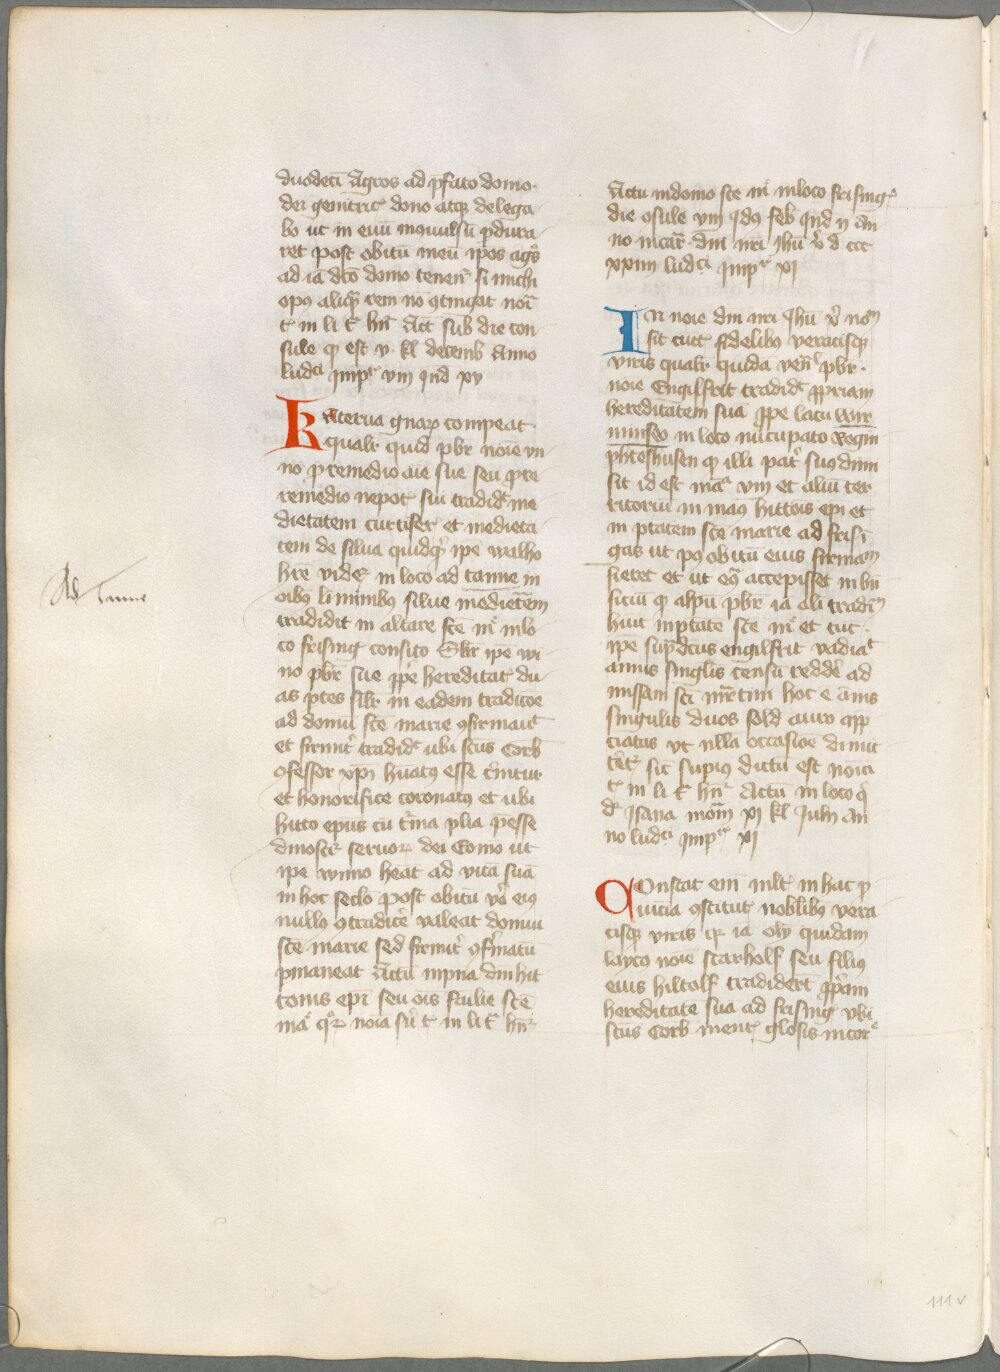 duodeci Agros ad pfato domo.
dei genitric dono atq delega
bo ut in euu inquulsu pdura
ret post obitu meu ipos agͦs
ad ia dco domo tenen si michi
opꝰ aliq rem no ꝯtingat noi
t in li t hnr Act sub die con
sule qͦ est v kl decemb Anno
ludci Impr viii Ind xv
Katerua gnaꝝ compeat
qualr quid pbr noie vu
no p remedio aie sue seu p re
remedio nepot sui tradidt me
dietatem curtifer et medieta
tem de silua quidqd ipe walho
hre vider in loco ad tanne in
oibꝰ liminibꝰ silue medietem
tradidit in altare sce mͬ in lo
co frising consito Slr ipe wi
no pbr sue ppe hereditat du
as ptes silr in eadem tradicoe
ad domu sce marie ꝯfirmauit
et firmit tradidt ubi scus Corb
ꝯfessor xpi huatꝰ esse cnitur
et honorifice coronatꝰ et ubi
hitto epus cu t̃ma plia pesse
dinoscir seruoꝝ dei Eo mo ut
ipe wnno heat ad vita sua
in hoc seclo post obitu vo eiꝰ
nullꝰ ꝯtradice valeat domui
sce marie sed firmit ꝯfrmatu
pmaneat Actu in pna dni hit
tonis epi seu ois faulie sce
maͬ qͦꝝ noia su t in li t hnr
Ad Tanne
Actu in domo sce mͬ in loco frising
die ꝯsule viii Idꝰ feb Ind ii An
no incar dni nri Jhu x d ccc
xxiiii ludci Impr xi
In noie dni nri Jhu x nom
sit cuct fidelibꝰ veracisq
viris qualr quida ven pbr.
noie Engilfrit tradidt ppriam
hereditatem sua ppe lacu wir
minseo in loco nucupato Regin
phteshusen qͦ illi pat suꝰ dimi
sit id est maͣ viii et aliu ter
ritoriu in manꝰ hittois epi et
in ptatem sce marie ad frisi
gas ut pꝰ obitu eius firmam
fieret et ut eqͣ accepisset in bn
ficiu qͦ alpu pbr ia oli tradi
hiut in ptate sce mͬ et tuc.
ipe supdcus engilfrit vadiat
annis singulis censu redde ad
missam sci mrtini hoc e anis
singulis duos sold auro app
ciatus ut ulla occasioe dimit
tet sic supiꝰ dictu est noia
t in li t hnr Actu in loco q
dr Isana mom xi kl Julii An
no ludci Impr xi
Constat eni mlt in hac p
uicia ꝯstitut noblibꝰ vera
cisq viris qr ia oly quidam
laycꝰ noie starholf seu filiꝰ
eius hiltolf tradidert ppam
hereditate sua ad frising vbi
scus Corb ment glosis incor
111 v